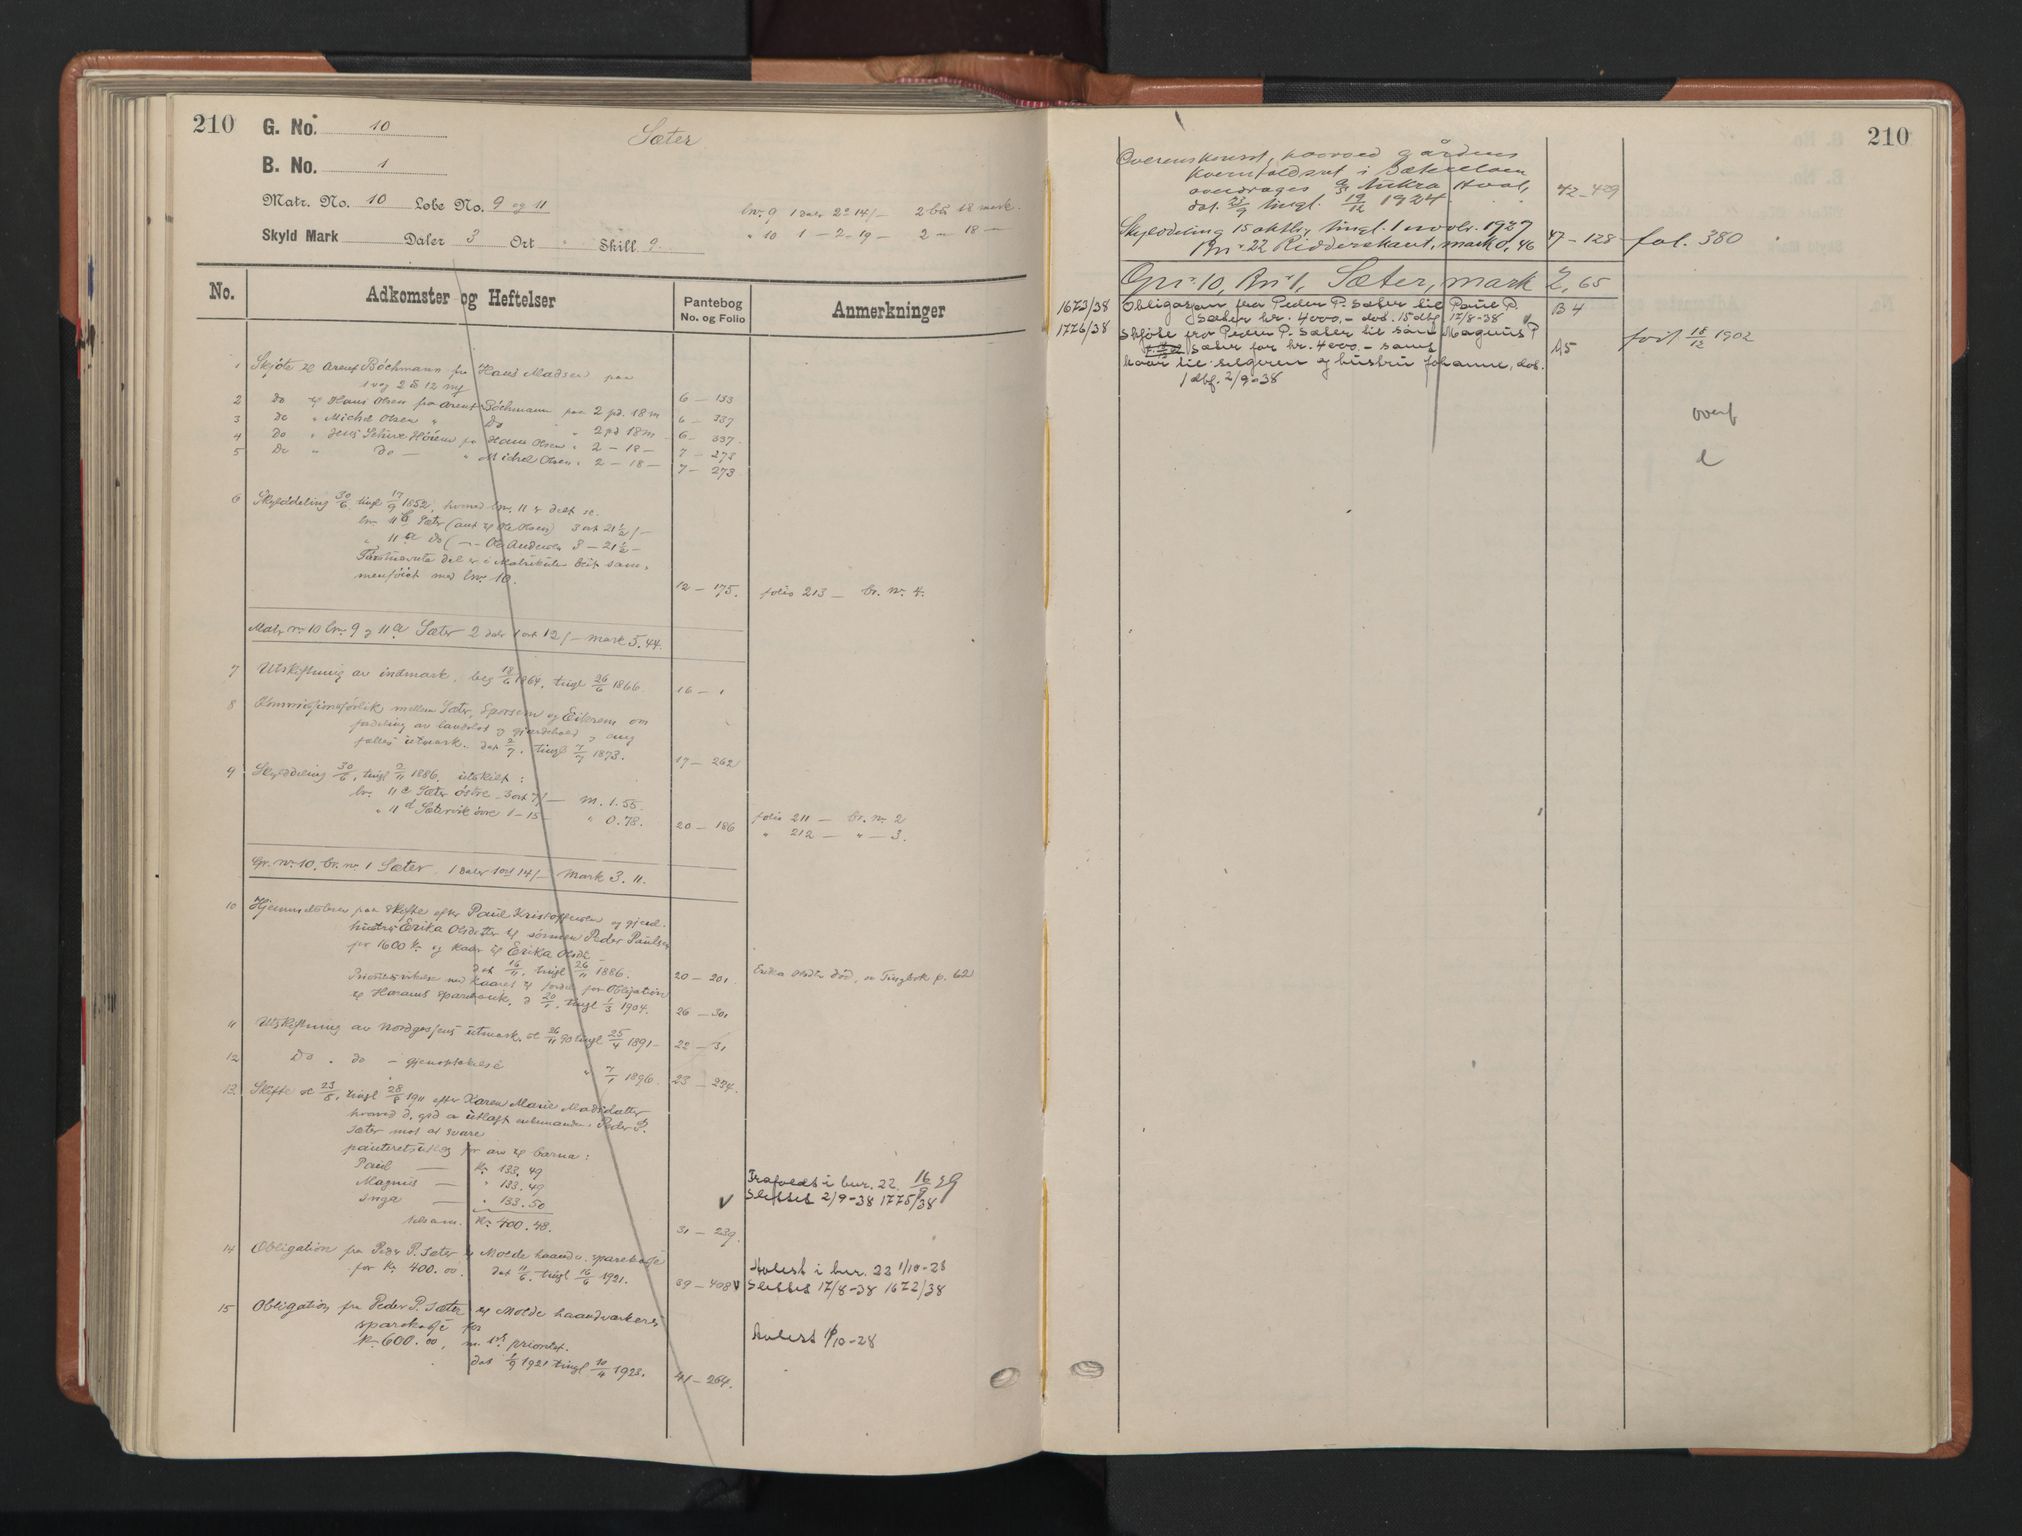 210
G. No. 10
Sæter
B. No. 1
Matr. No. 10 Løbe No. 9 og 11
lnr. 9 1 Daler 2 - 14/- 2 bü 18 merk.
Skyld Mark Daler 3 Ort " Skill 9.
" 10 1 - 2 - 19 - 2 - 18 -
No.
Adkomster og Heftelser
Pantebog
No. og Folio
Anmerkninger
1 Skjöte til Arent Böchmann fra Hans Madsen paa
1 vog 2 12 mg 6 - 133
2 Do til Hans Olsen fra Arent Böchmann paa 2 pd. 18 m 6 - 337
3 Do " Michel Olsen " Do " 2 pd 18 m 6 - 337.
4 Do " Jens Høiem fra Hans Olsen " 2 - 18 - 7 - 273
5 Do " do - " Michel Olsen " 2 - 18 - 7 - 273
6 Skylddeling 30/6 tingl 17/9 1852, hvorved lnr. 11 er delt se.
lnr. 11 b Sæter (ant til Ole Olsen) 3 ort 21 1/2 /-
" 11 a Do ( - - Ole Andersen 3 - 21 1/2 -
Förstnævnte del er i Matrikulen blit sam-
menföiet med lnr. 10. 12 - 175. folio 213 - br. nr. 4.
Matr nr. 10 lnr. 9 og 11 a Sæter 2 daler 1 ort 12/- mark 5.44.
7 Utskiftning av indmark, beg 18/6 1864, tingl 26/6 1866. 16 - 1
8 Kommissionsforlik mellem Sæter, og Eikrem om
fordeling av landslod og gjerdehold og
fælles utmark. dat 2/7, tingl 7/7 1873. 17 - 262
9 Skylddeling 30/6, tingl 2/11 1886. utskilt:
lnr. 11 c Sæter östre 3 ort 7/- m. 1.55. folio 211 - br. nr. 2
" 11 d Sætervik övre 1 - 15 - " 0.78. 20 - 186 " 212 - " - 3.
Gr. nr. 10, br. nr. 1 Sæter 1 daler 1 ort 14/- Mark 3.11.
10 Hjemmelsbrev paa skifte efter Paul Kristoffersen og gjenl.
hustru Erika Olsdatter til sönnen Peder Paulsen
for 1600 kr og kaar til Erika Olsdt
dat 16/11, tingl 26/11 1886. 20 - 201 Erika Olsdtr död, se Tingbok p. 62
Prioritetsvikelse med kaaret til fordel for Obligation
til Harams sparebank, d 20/1, tingl 1/3 1904. 26 - 301
11 Utskiftning av Nordgaffens utmark, d 26/11 90 tingl 25/4 1891 - 22 - 31
12 Do . do - gjenoptakelse " 7/1 1896. 23 - 234.
13. Skifte d 23/8, tingl 28/8 1911 efter Karen Marie Madsdatter
hvorved d. gd er utlagt enkemanden Peder P.
Sæter mot at svare
panteretsutlæg for arv til barna:
Paul - Kr. 133.49
Magnus - " 133.49
Inga - " 133.50
tilsam. Kr. 400.48. 31 - 239.
Frafaldt i bnr. 22. 16/8 29
√ Slettet 2/9-38 1775/38
14 Obligation fra Peder P. Sæter til Molde haandv. sparekasse
for Kr. 400.00. dat 11/6. tingl 16/6 1921. 39 - 408 √
Avlest i bnr. 22 1/10-28
Slettet 17/8-38 1672/38
15 Obligation fra Peder P. Sæter til Molde haandverkeres
sparekasse for
Kr. 600.00, m. 1ste prioritet.
dat 1/9 1921 tingl 10/4 1923. 41 - 264.
Avlest 1/10-28
210
Overenskomst, hvorved gårdens
kvernfoldsret i Sæterelven
overdrages
dat. 23/9 tingl. 19/12 1924. 42 - 429
Skylddeling 15 oktbr, tingl. 1 novbr. 1927
Bnr 22 Ridderskaut, mark 0,46 47 - 128 fol. 380
Gnr 10, Bnr 1, Sæter, mark 2,65
1673/38 Obligasjon fra Peder P. Sæter til Paul P.
Sæter kr. 4000,- dat. 15 dbf 17/8-38 B 4
1776/38 Skjöte fra Peder P. Sæter til sön Magnus P
Sæter for kr. 4000,- samt A5 født 18/12 1902
kaar til selgeren og hustru Johanne, dat.
1 dbf. 2/9-38
overf